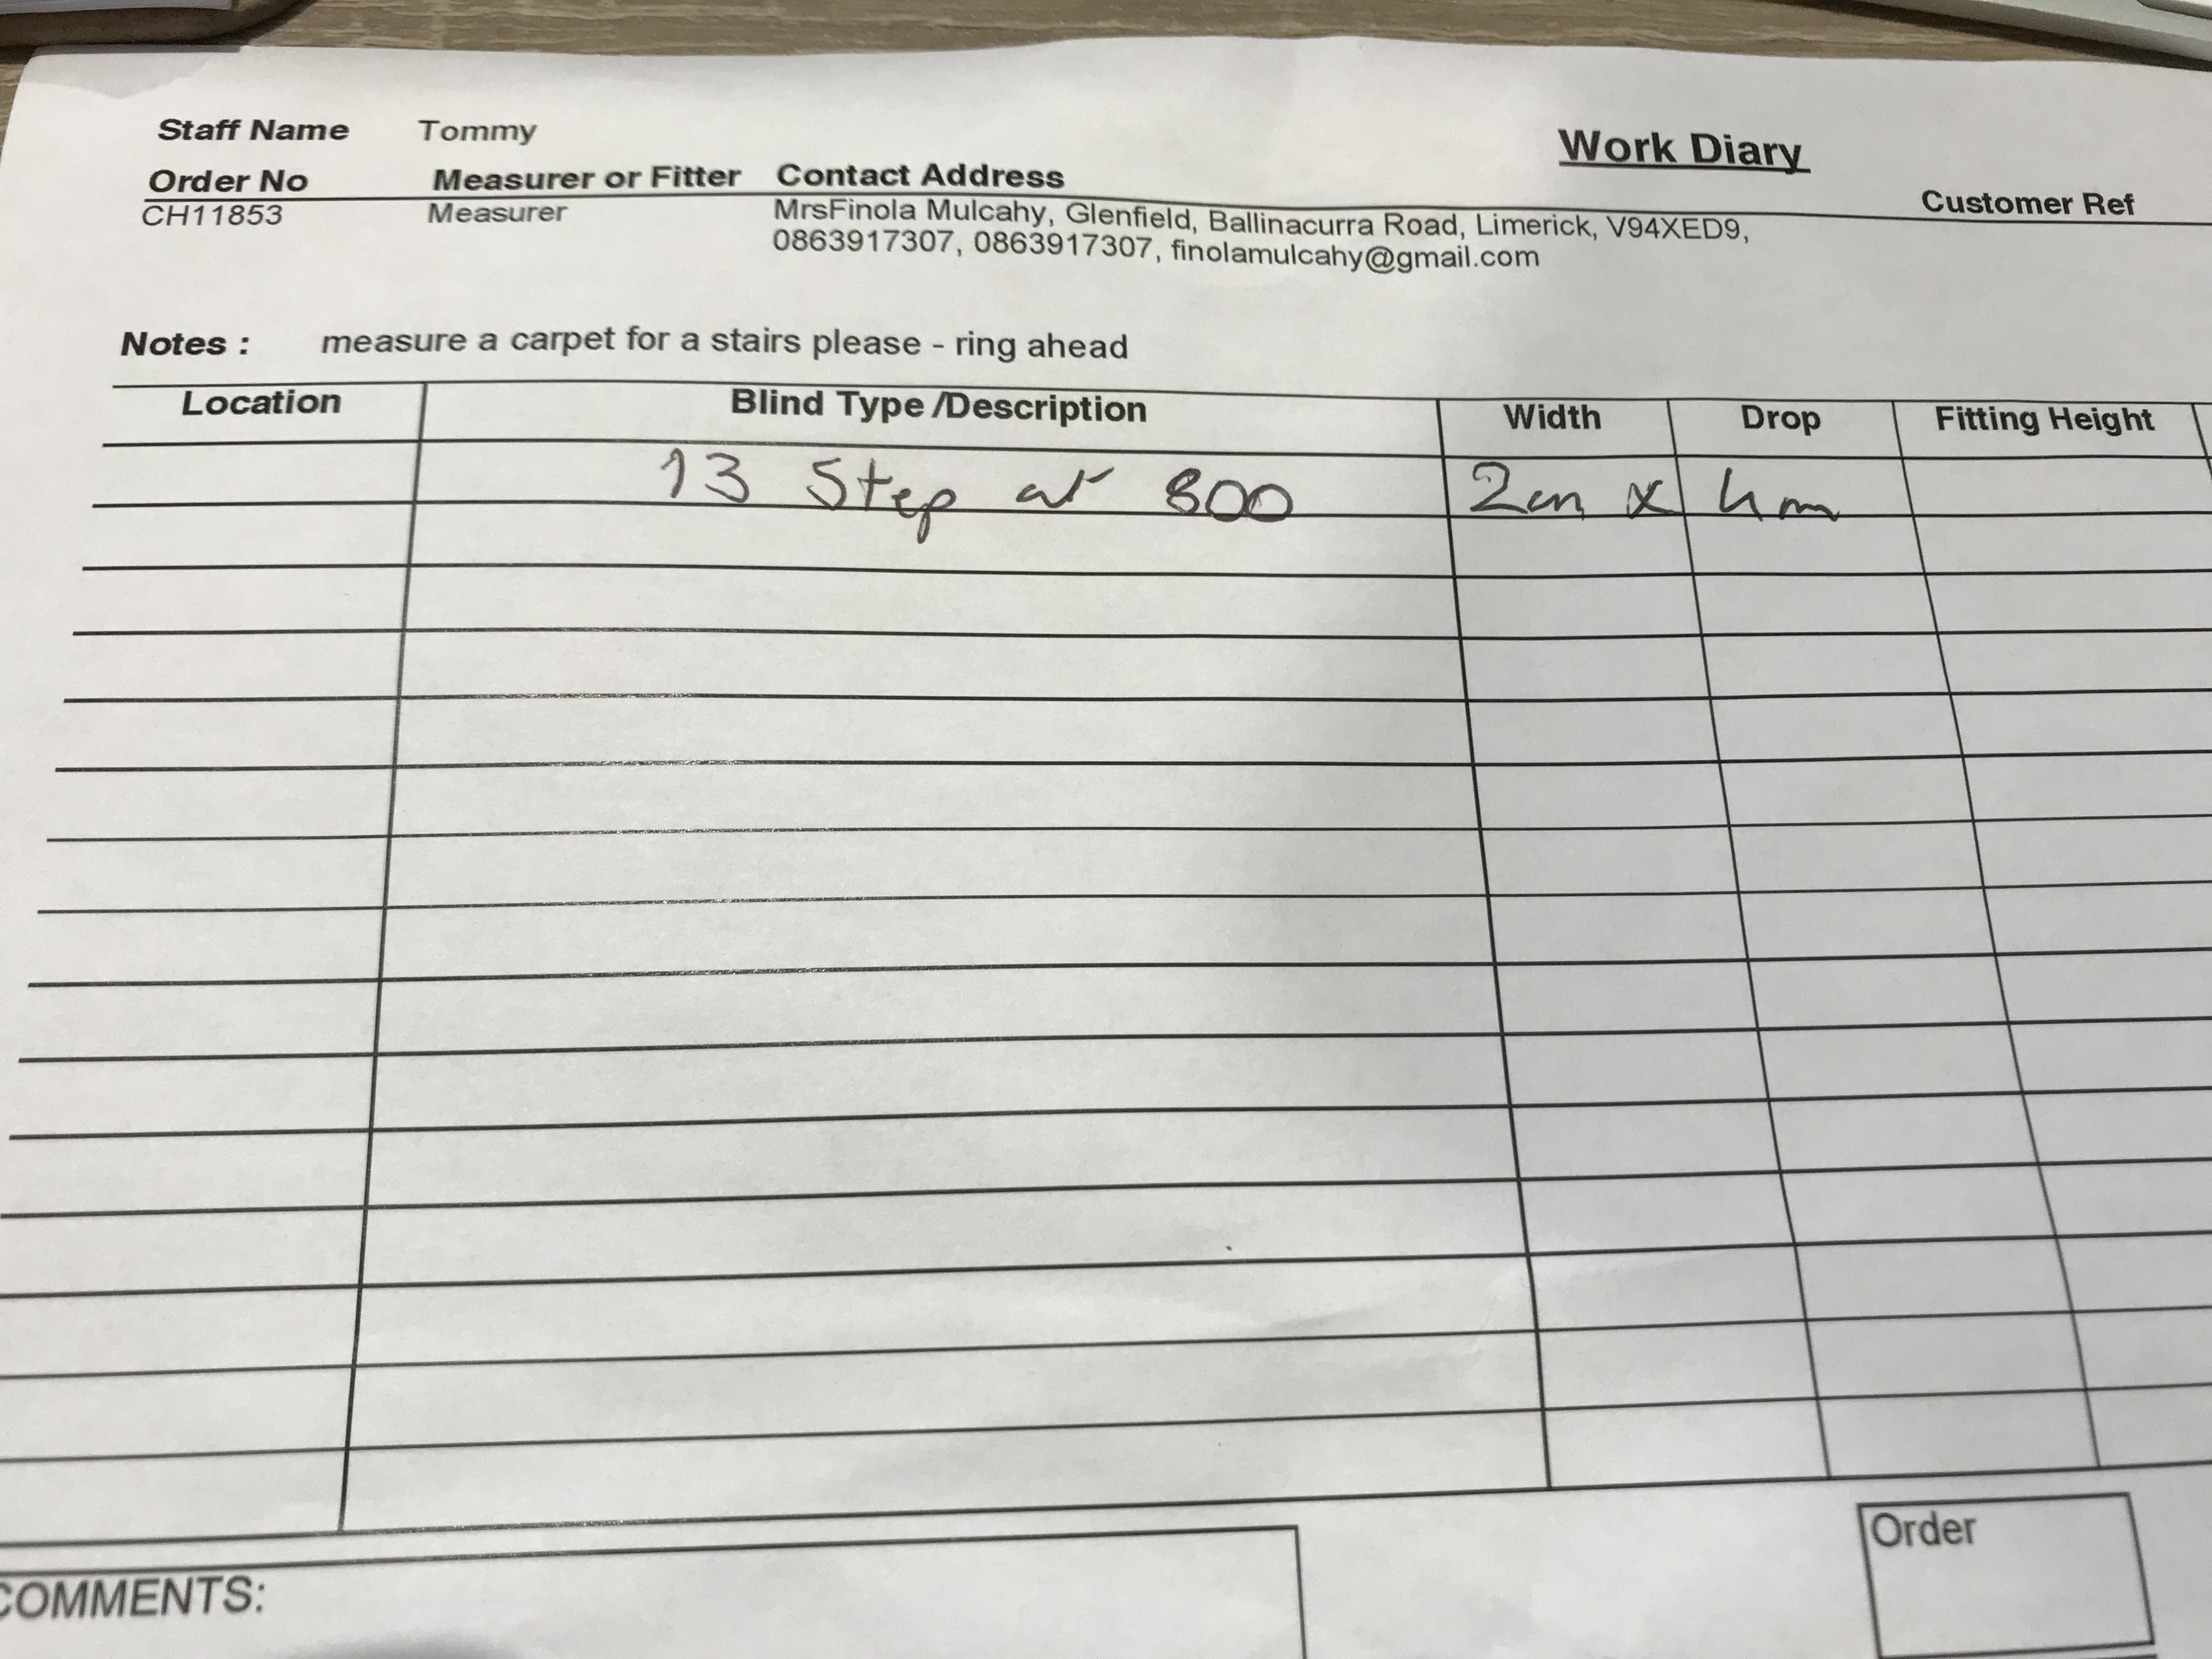 Staff Name Tommy
Work Diary
Order No Measurer or Fitter Contact Address Customer Ref
CH11853 Measurer MrsFinola Mulcahy, Glenfield, Ballinacurra Road, Limerick, V94XED9,
0863917307, 0863917307, finolamulcahy@gmail.com
Notes : measure a carpet for a stairs please - ring ahead
Location Blind Type /Description Width Drop Fitting Height
13 Step at 800 2m x 4m
Order
COMMENTS: